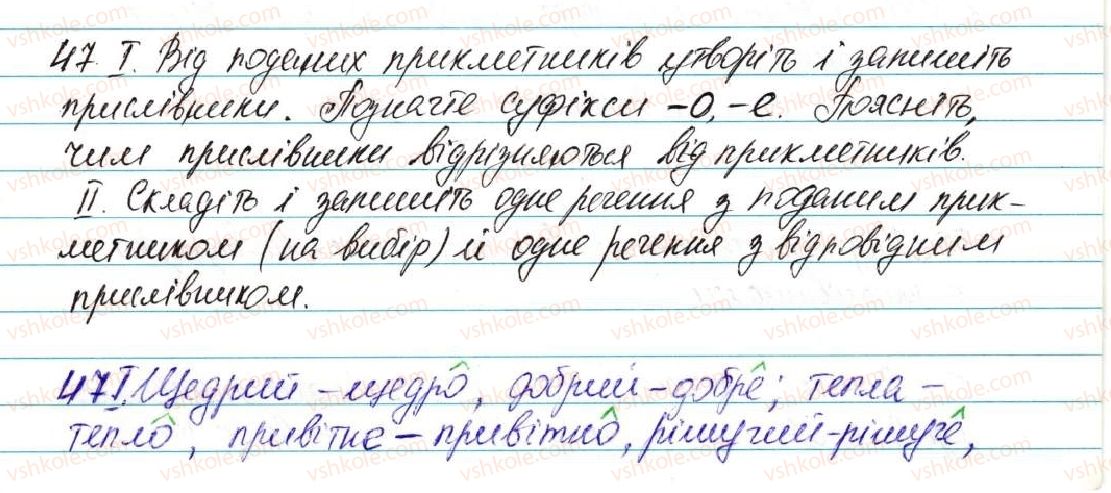 47. І. Від поданих прикметників утворіть і запишіть
прислівники. Позначте суфікси -о, -е. Поясніть,
чим прислівники відрізняються від прикметників.
ІІ. Складіть і запишіть одне речення з поданим прик-
метником (на вибір) й одне речення з відповідним
прислівником.
47 І. Щедрий - щедро, добрий - добре; тепла -
тепло, привітне - привітно, рішучий - рішуче,